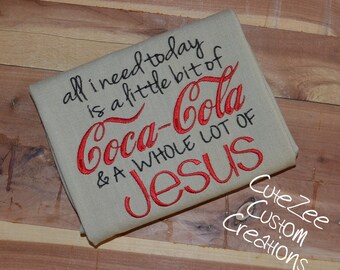 all i need today
is a little bit of
Coca-Cola
& A WHOLE LOT OF
Jesus
CuteZee
Custom
Creations